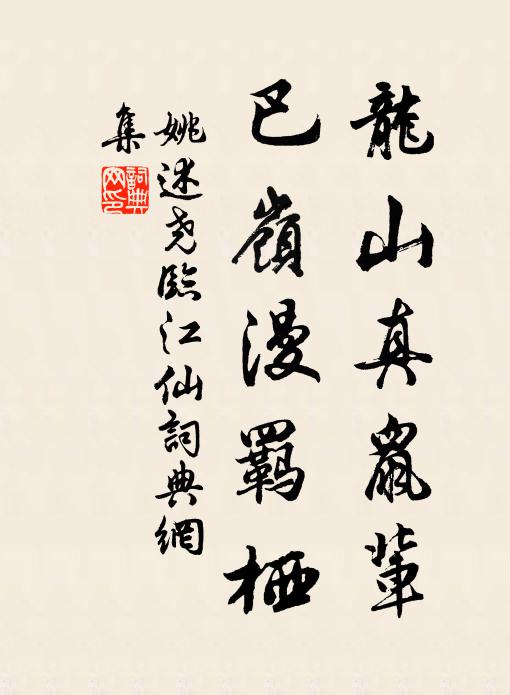 龍山真鼠輩
巴嶺漫羈栖
姚述尧臨江仙詞典網
集
詞典网印